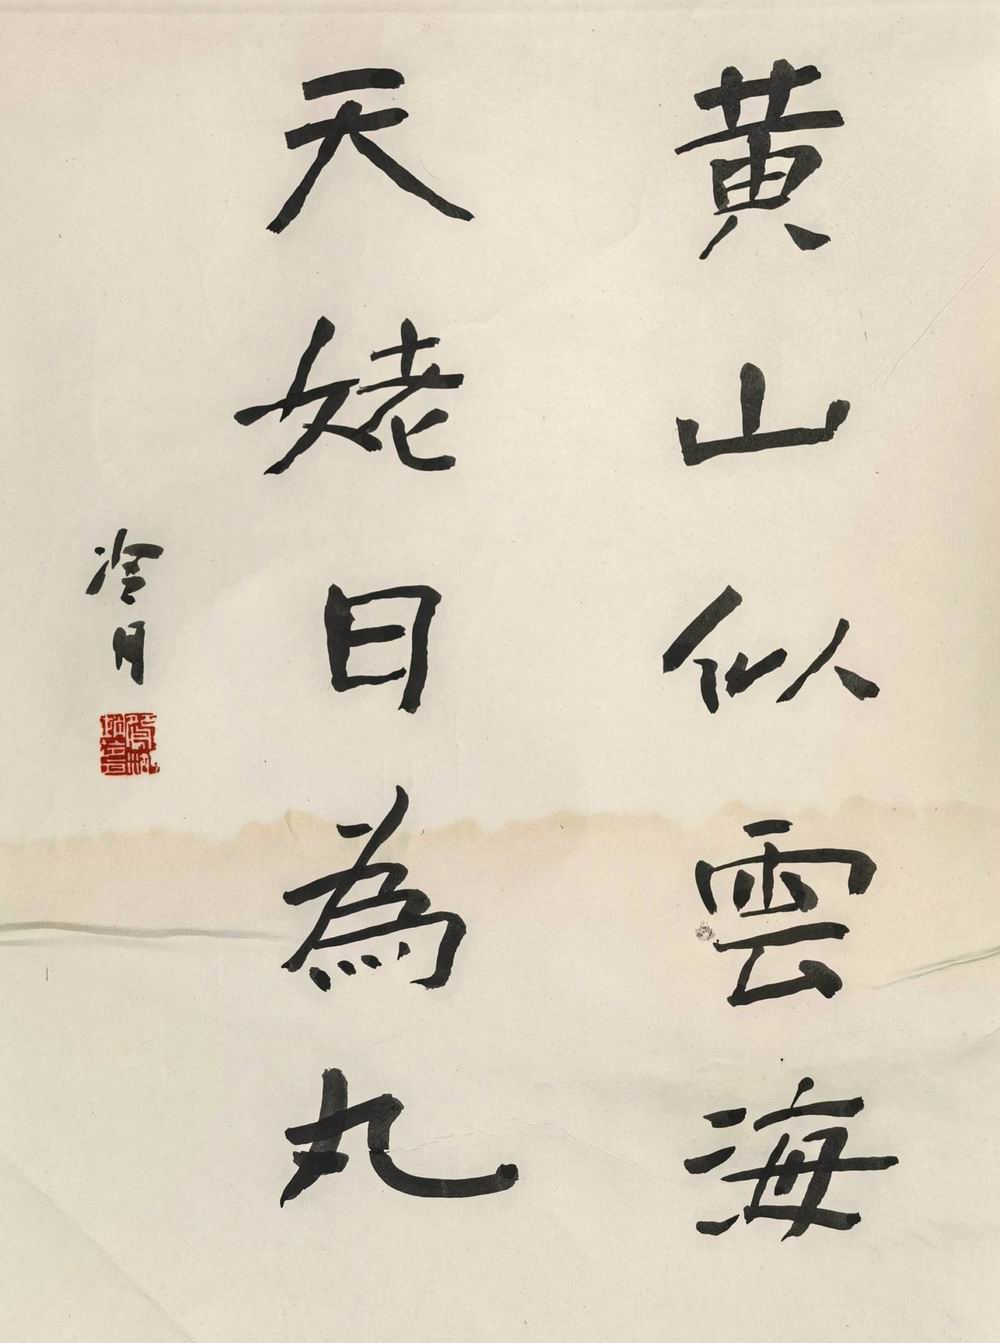 黄山似雲海
天姥日為丸
冷月